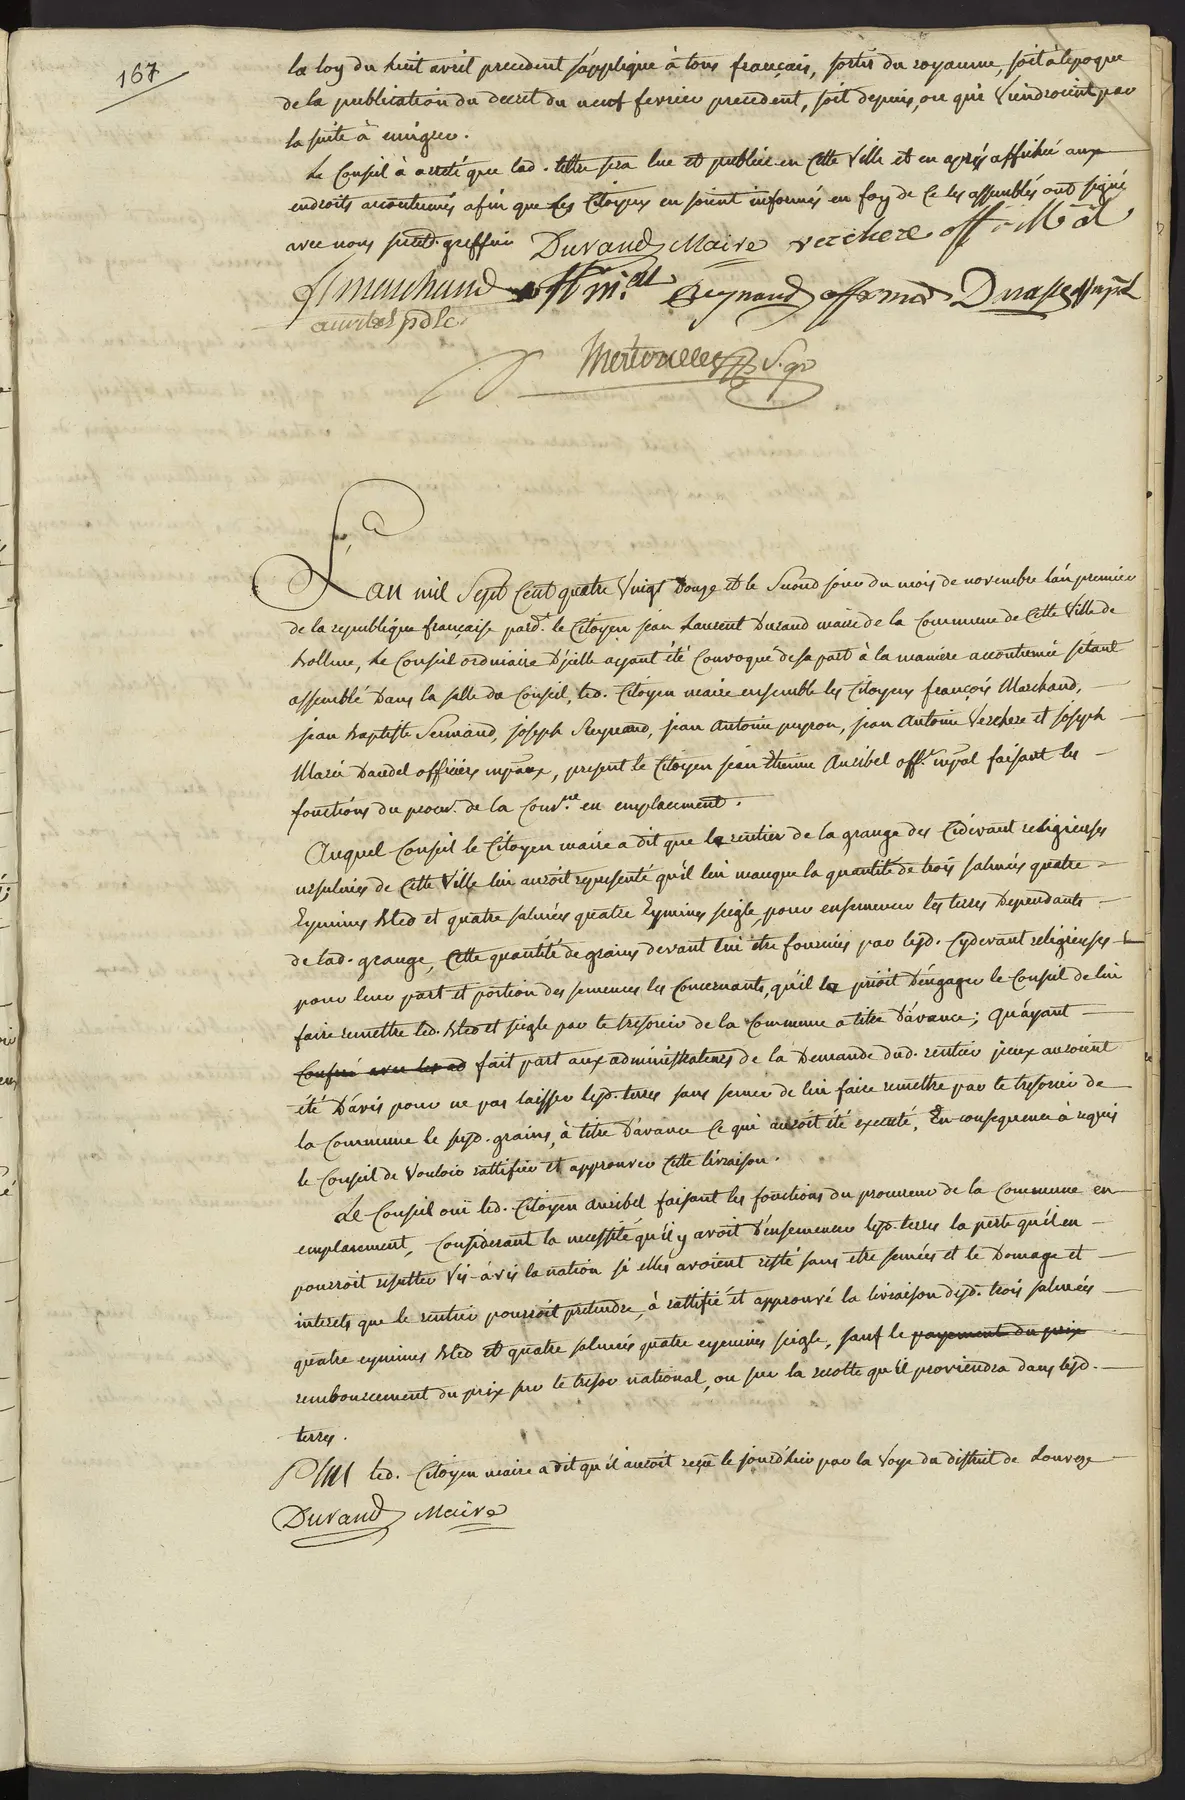 167
la loy du huit avril precedent s'applique à tous françois, sortis du royaume, soit à l'epoque
de la publication du decret du neuf fevrier precedent, soit depuis, ou qui viendroient par
la suite à emigrer.
Le Conseil à arreté que lad. lettre sera lue et publiée en Cette Ville et en après affichée aux
endroits accoutumés afin que les Citoyens en soient informés en foy de Ce les assemblés ont signé
avec nous secret. greffier Durand Maire verchere off. M.al
f marchand off m.al Reynard off mal
auribel pdlc
S. gr
L'an mil Sept Cent quatre Vingt Douze et le Second jour du mois de novembre l'an premier
de la republique française pard.t le Citoyen jean Laurent Durand maire de la Commune de Cette Ville de
bollene, Le Conseil ordinaire D'jcelle ayant été Convoqué de sa part à la maniere accoutumée s'étant
assemblé Dans la salle du Conseil, led. Citoyen maire ensemble les Citoyens françois Marchand,
jean baptiste joseph Reynard, jean Antoine peyron, jean Antoine Verchere et joseph
Marie Daudel officiers mpaux, present le Citoyen jean Etienne Auribel off.r mpal faisant les
fonctions du procur. de la Com.ne en emplacement.
Auquel Conseil le Citoyen maire a dit que le rentier de la grange des Cidevant religieuses
ursulines de Cette Ville lui auroit representé qu'il lui manque la quantité de trois salmées quatre
Eymines bled et quatre salmées quatre Eymines seigle, pour ensemencer les terres Dependants
de lad. grange, Cette quantité de grains devant lui etre fournies par lesd. Cydevant religieuses
pour leur part et portion des semences les Concernants, qu'il le prioit D'engager le Conseil de lui
faire remettre led. bled et seigle par le tresorier de la Commune a titre D'avance; qu'ayant
Conferé avec les ad fait part aux administrateurs de la Demande dud. rentier jceux auroient
été D'avis pour ne pas laisser lesd. terres sans semer de lui faire remettre par le tresorier de
la Commune le susd. grains, à titre D'avance Ce qui auroit été executé, En consequence à requis
le Conseil de Vouloir rattifier et approuver Cette livraison.
Le Conseil oui led. Citoyen Auribel faisant les fonctions du procureur de la Commune en
emplacement, Considerant la necessité qu'il y avoit D'ensemencer lesd. terres la perte qu'il en
pourroit resulter Vis-à-vis la nation si elles avoient resté sans etre semées et le Domage et
interets que le rentier pourroit pretendre, à rattifié et approuvé la livraison desd. trois salmées
quatre eymines bled et quatre salmées quatre eymines seigle, sauf le payement du prix
remboursement du prix sur le tresor national, ou sur la recolte qu'il proviendra dans lesd.
terres.
Plus led. Citoyen maire a dit qu'il auroit reçu le jourd'hier par la Voye du district de Louveze
Durand Maire